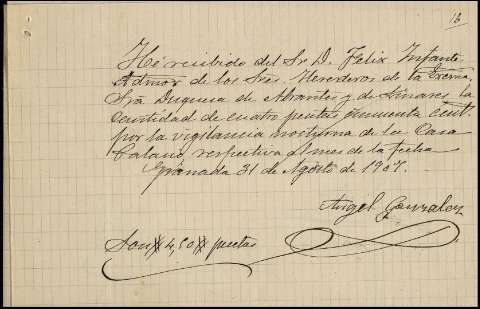 13
He recibido del Sr. D. Felix Infante
Admor de los Sres. Herederos de la Exema.
Sra Duquesa de Abrantes y de Linares la
Cantidad de cuatro pesetas cincuenta cent.
por la vigilancia nocturna de la Casa
respectiva al mes de la fecha
Granada 31 de Agosto de 1907.
Angel Gonzalez
Son # 4,50 # pesetas